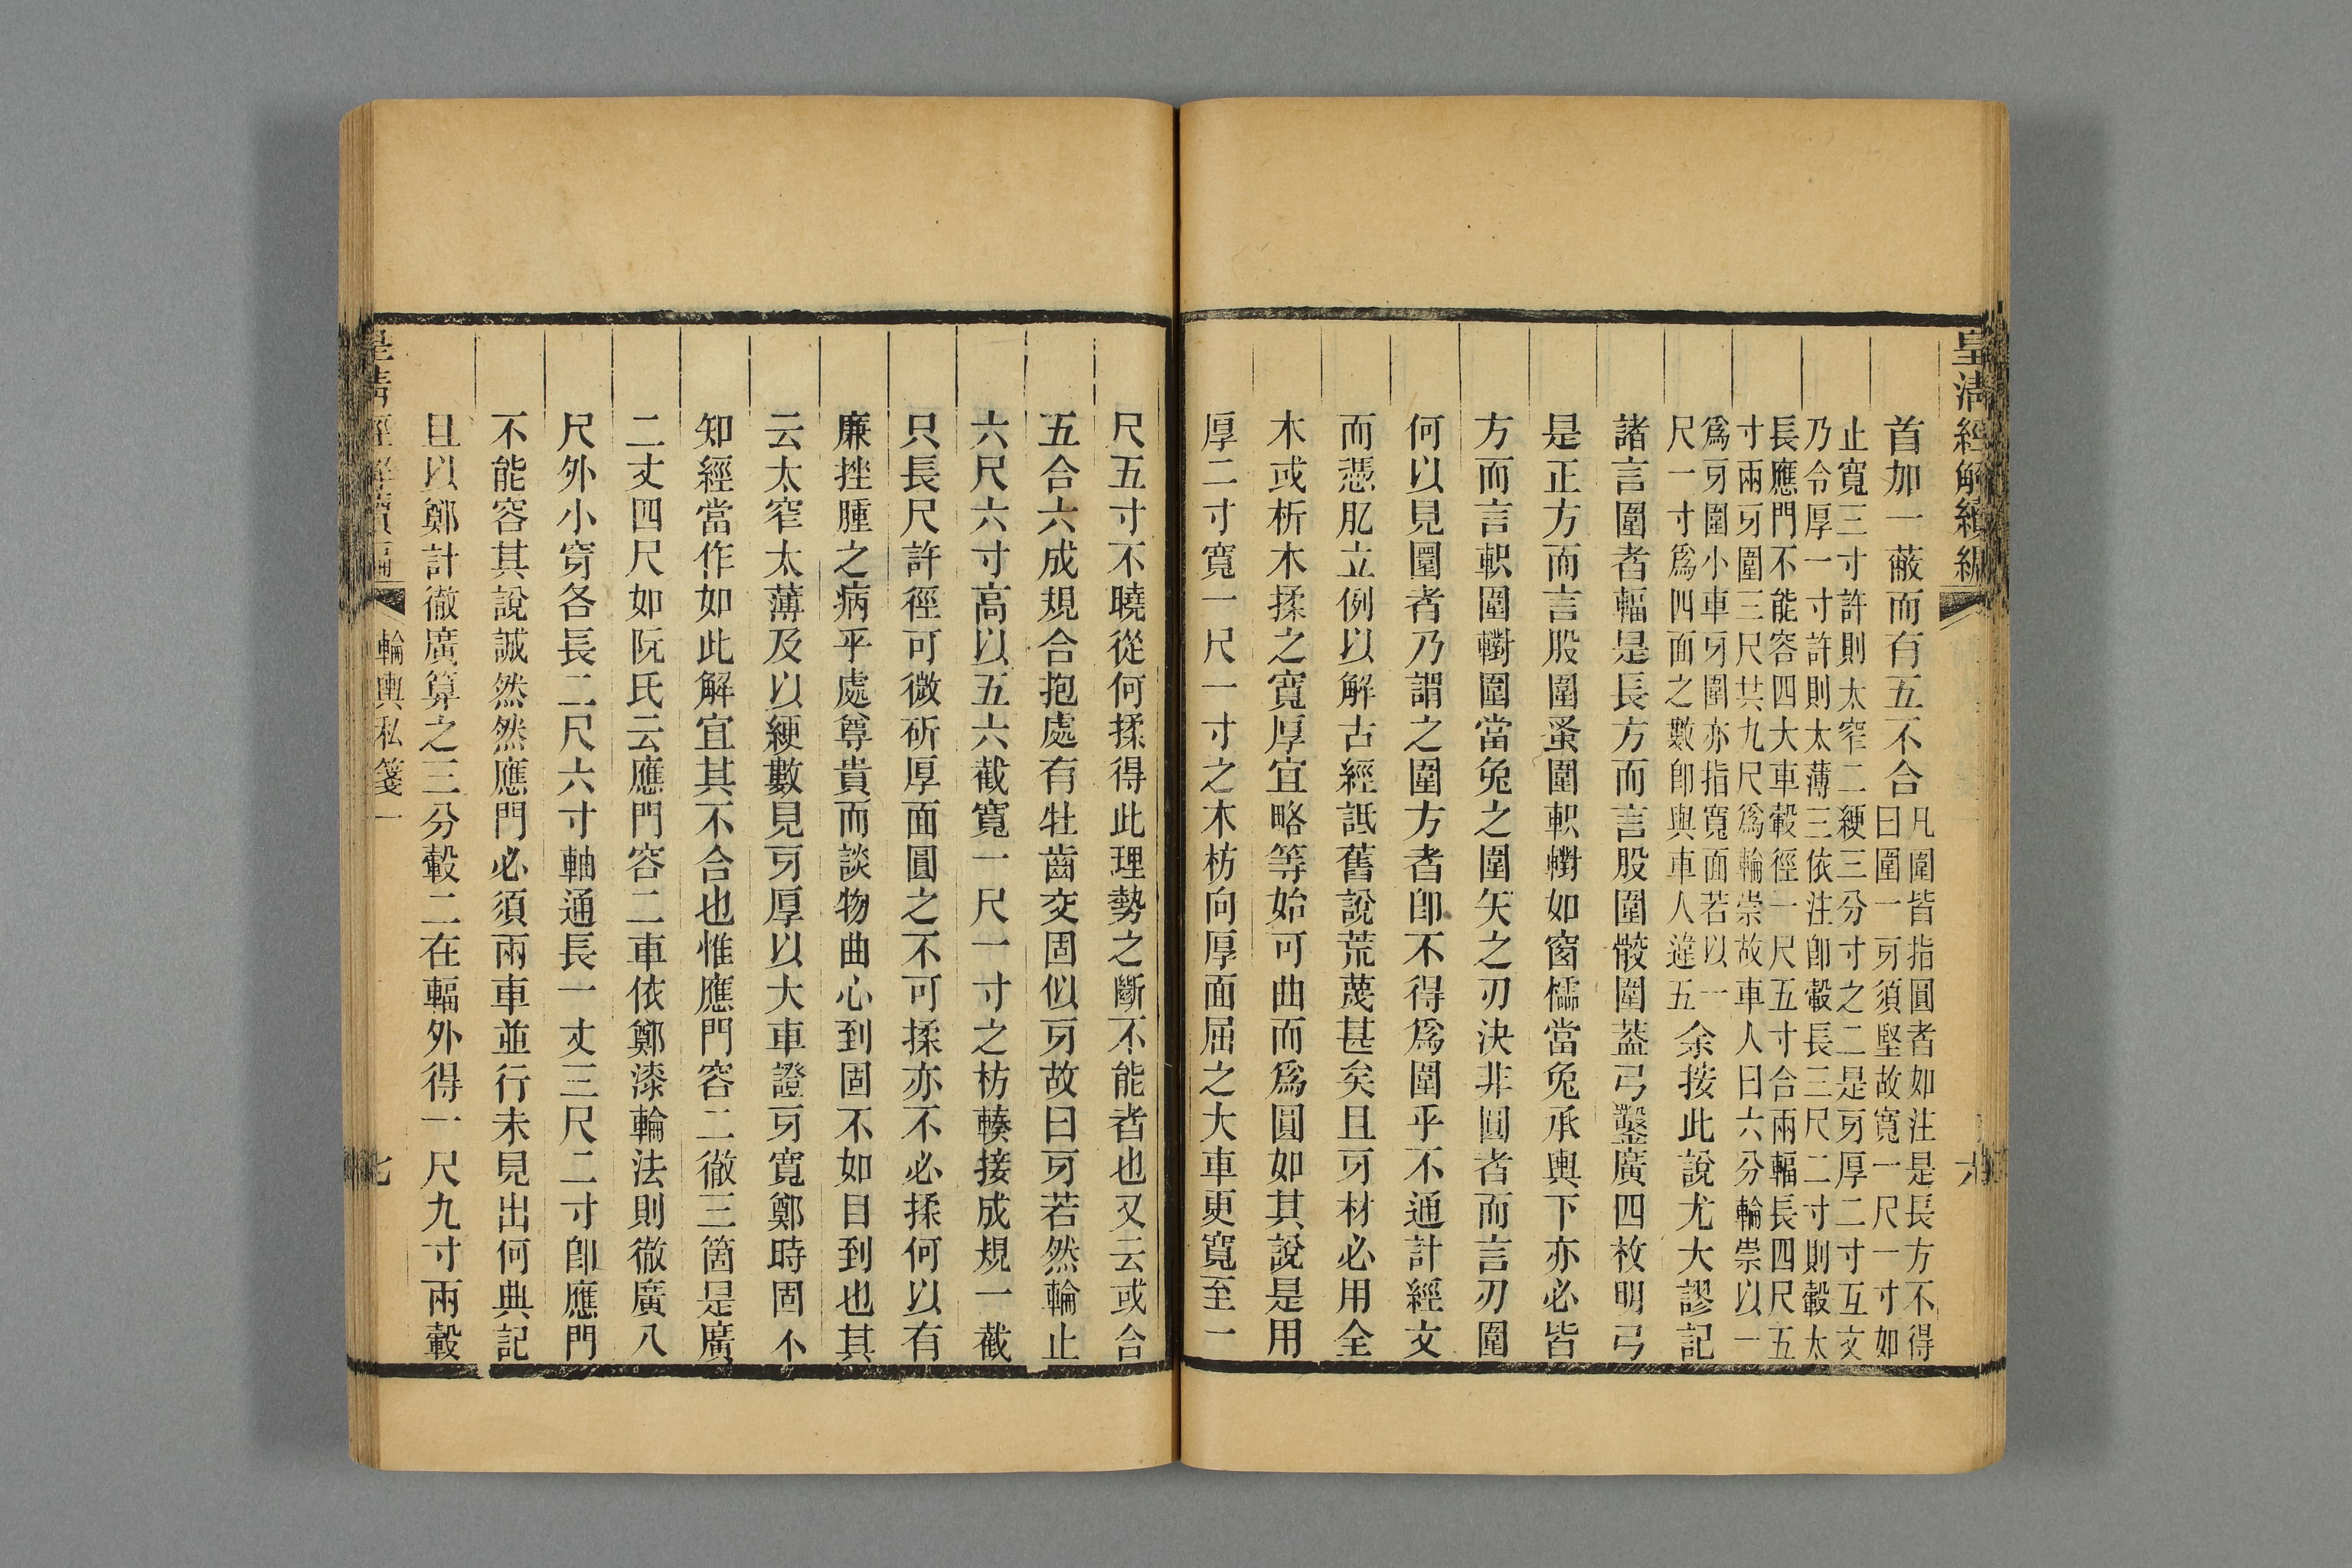 皇清經解續編
六
首加一蔽而有五不合凡圍皆指圓者如注是長方不得
曰圍一牙須堅故寬一尺一寸如
止寬三寸許則太窄二綆三分寸之二是牙厚二寸互文
乃令厚一寸許則太薄三依注卽轂長三尺二寸則轂太
長應門不能容四大車轂徑一尺五寸合兩輻長四尺五
寸兩牙圍三尺共九尺爲輪崇故車人曰六分輪崇以一
爲牙圍小車牙圍亦指寬面若以一
尺一寸爲四面之數卽與車人違五余按此說尤大謬記
諸言圍者輻是長方而言股圍骹圍葢弓鑿廣四枚明弓
是正方而言股圍蚤圍軹轛如窗櫺當兔承輿下亦必皆
方而言軹圍轛圍當兔之圍矢之刃決非圓者而言刃圍
何以見圍者乃謂之圍方者卽不得爲圍乎不通計經文
而憑肊立例以解古經詆舊說荒蔑甚矣且牙材必用全
木或析木揉之寬厚宜略等始可曲而爲圓如其說是用
厚二寸寬一尺一寸之木枋向厚面屈之大車更寬至一
尺五寸不曉從何揉得此理勢之斷不能者也又云或合
五合六成規合抱處有牡齒交固似牙故曰牙若然輪止
六尺六寸高以五六截寬一尺一寸之枋輳接成規一截
只長尺許徑可微斫厚面圓之不可揉亦不必揉何以有
廉挫腫之病乎處尊貴而談物曲心到固不如目到也其
云太窄太薄及以綆數見牙厚以大車證牙寬鄭時固不
知經當作如此解宜其不合也惟應門容二徹三箇是廣
二丈四尺如阮氏云應門容二車依鄭漆輪法則徹廣八
尺外小穿各長二尺六寸軸通長一丈三尺二寸卽應門
不能容其說誠然然應門必須兩車並行未見出何典記
且以鄭計徹廣算之三分轂二在輻外得一尺九寸兩轂
皇清經解續編
輪輿私箋一
七